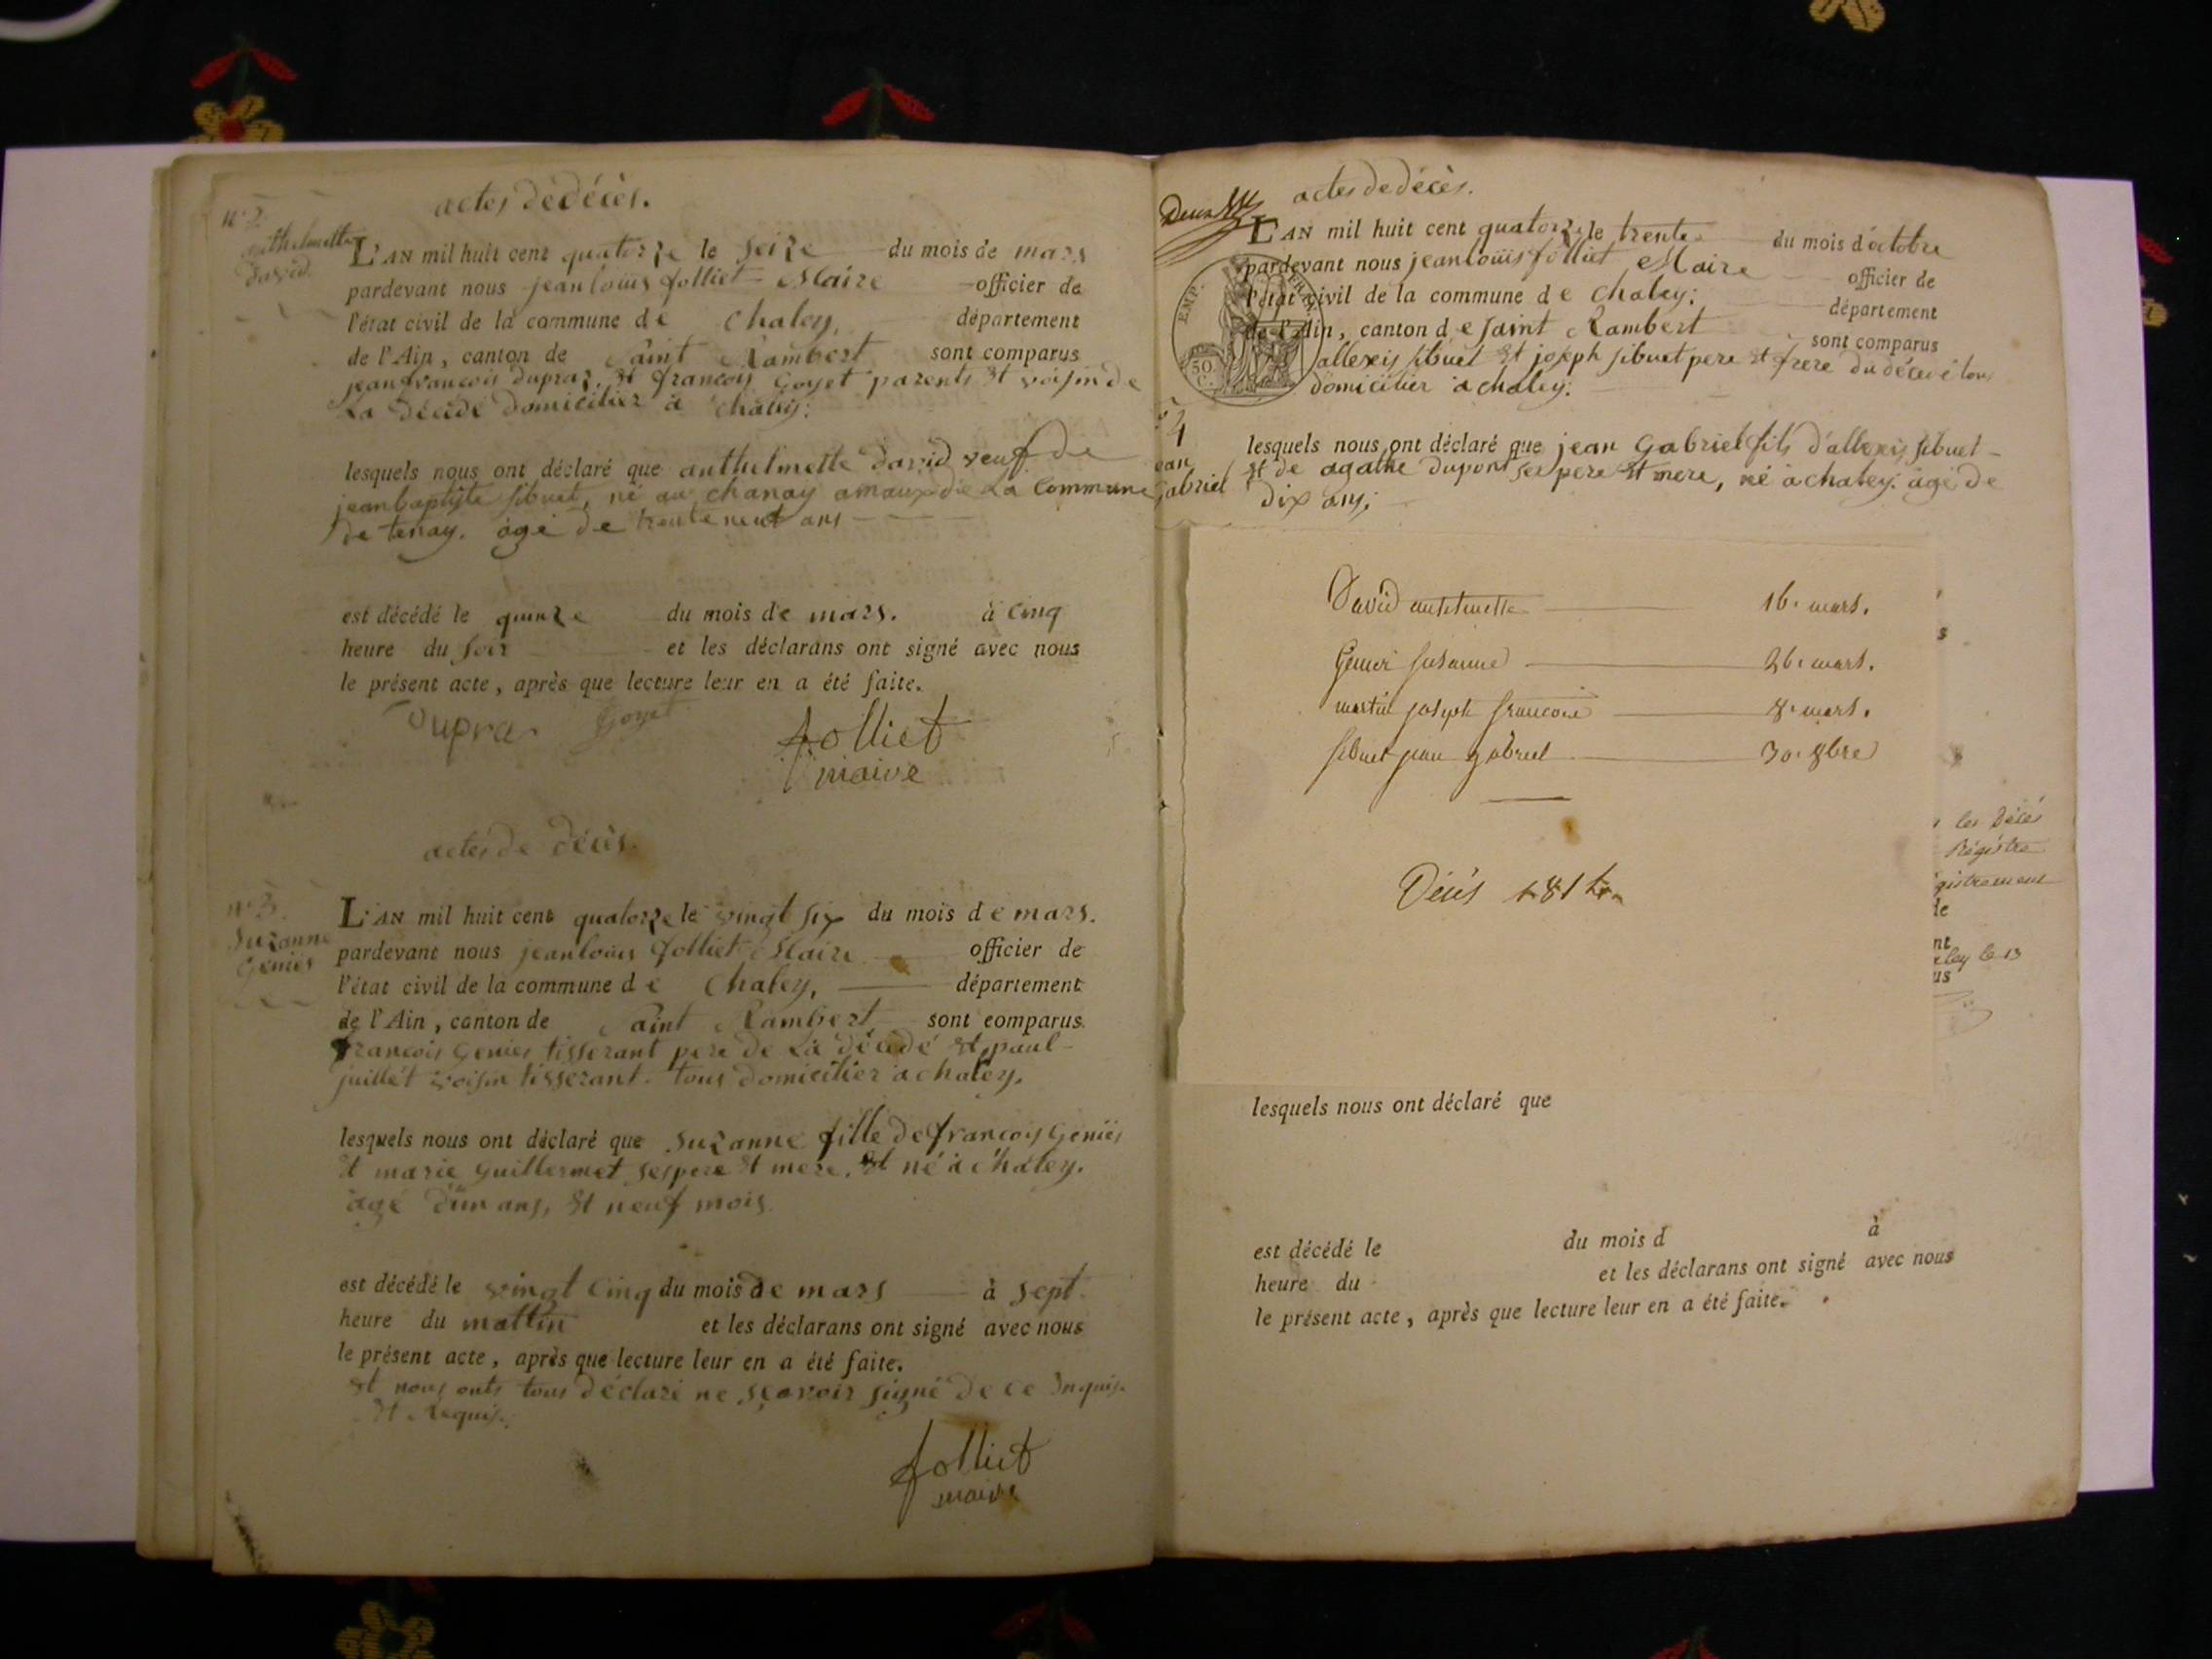 actes de décès.
N° 2.
anthelmette
david.
L'AN mil huit cent quatorze le seize du mois de mars
pardevant nous jean louis folliet Maire officier de
l'état civil de la commune de Chaley, département
de l'Ain, canton de Saint Rambert sont comparus
jean francois dupraz. et francois Goyet parents et voisin de
La décédé domicilier à chaley:
lesquels nous ont déclaré que anthelmette david veuf de
jean baptiste sibuet, né au chanay amaux de La Commune
de tenay. âgé de trente neuf ans
est décédé le quinze du mois de mars. à cinq
heure du soir et les déclarans ont signé avec nous
le présent acte, après que lecture leur en a été faite.
Dupraz Goyet
folliet
maire
actes de décès.
N° 3.
Suzanne
Geniés
L'AN mil huit cent quatorze le vingt six du mois de mars.
pardevant nous jean louis folliet Maire officier de
l'état civil de la commune de Chaley, département
de l'Ain, canton de Saint Rambert sont comparus
francois Genies tisserant pere de La décédé et paul
juillet voisin tisserant. tous domicilier à chaley.
lesquels nous ont déclaré que Suzanne fille de francois Geniés
et marie guillermet ses pere et mere. et né à chaley.
âgé d'un ans, et neuf mois.
est décédé le vingt cinq du mois de mars à sept
heure du mattin et les déclarans ont signé avec nous
le présent acte, après que lecture leur en a été faite.
et nous onts tous déclaré ne sçavoir signé de ce Enquis.
et Requis.
folliet
maire
actes de décès.
L'AN mil huit cent quatorze le trente du mois d'octobre
pardevant nous jean louis folliet Maire officier de
l'état civil de la commune de Chaley: département
de l'Ain, canton de saint Rambert sont comparus
EMP. FRAN.
50
C.
allexis sibuet et joseph sibuet pere et frere du décédé tous
domicilier à chaley:
4
ean
Gabriel
lesquels nous ont déclaré que jean Gabriel fils d'allexis sibuet
et de agathe dupont ses pere et mere, né à chaley. âgé de
dix ans;
David anthelmette 16. mars.
Genier susanne 26. mars.
martin joseph francois 8. mars.
sibuet jean gabriel 30. 8bre
Décès 1814
s
les Décés
Régistre
gistrement
de
nt
ley le 13
us
lesquels nous ont déclaré que
est décédé le du mois d à
heure du et les déclarans ont signé avec nous
le présent acte, après que lecture leur en a été faite.